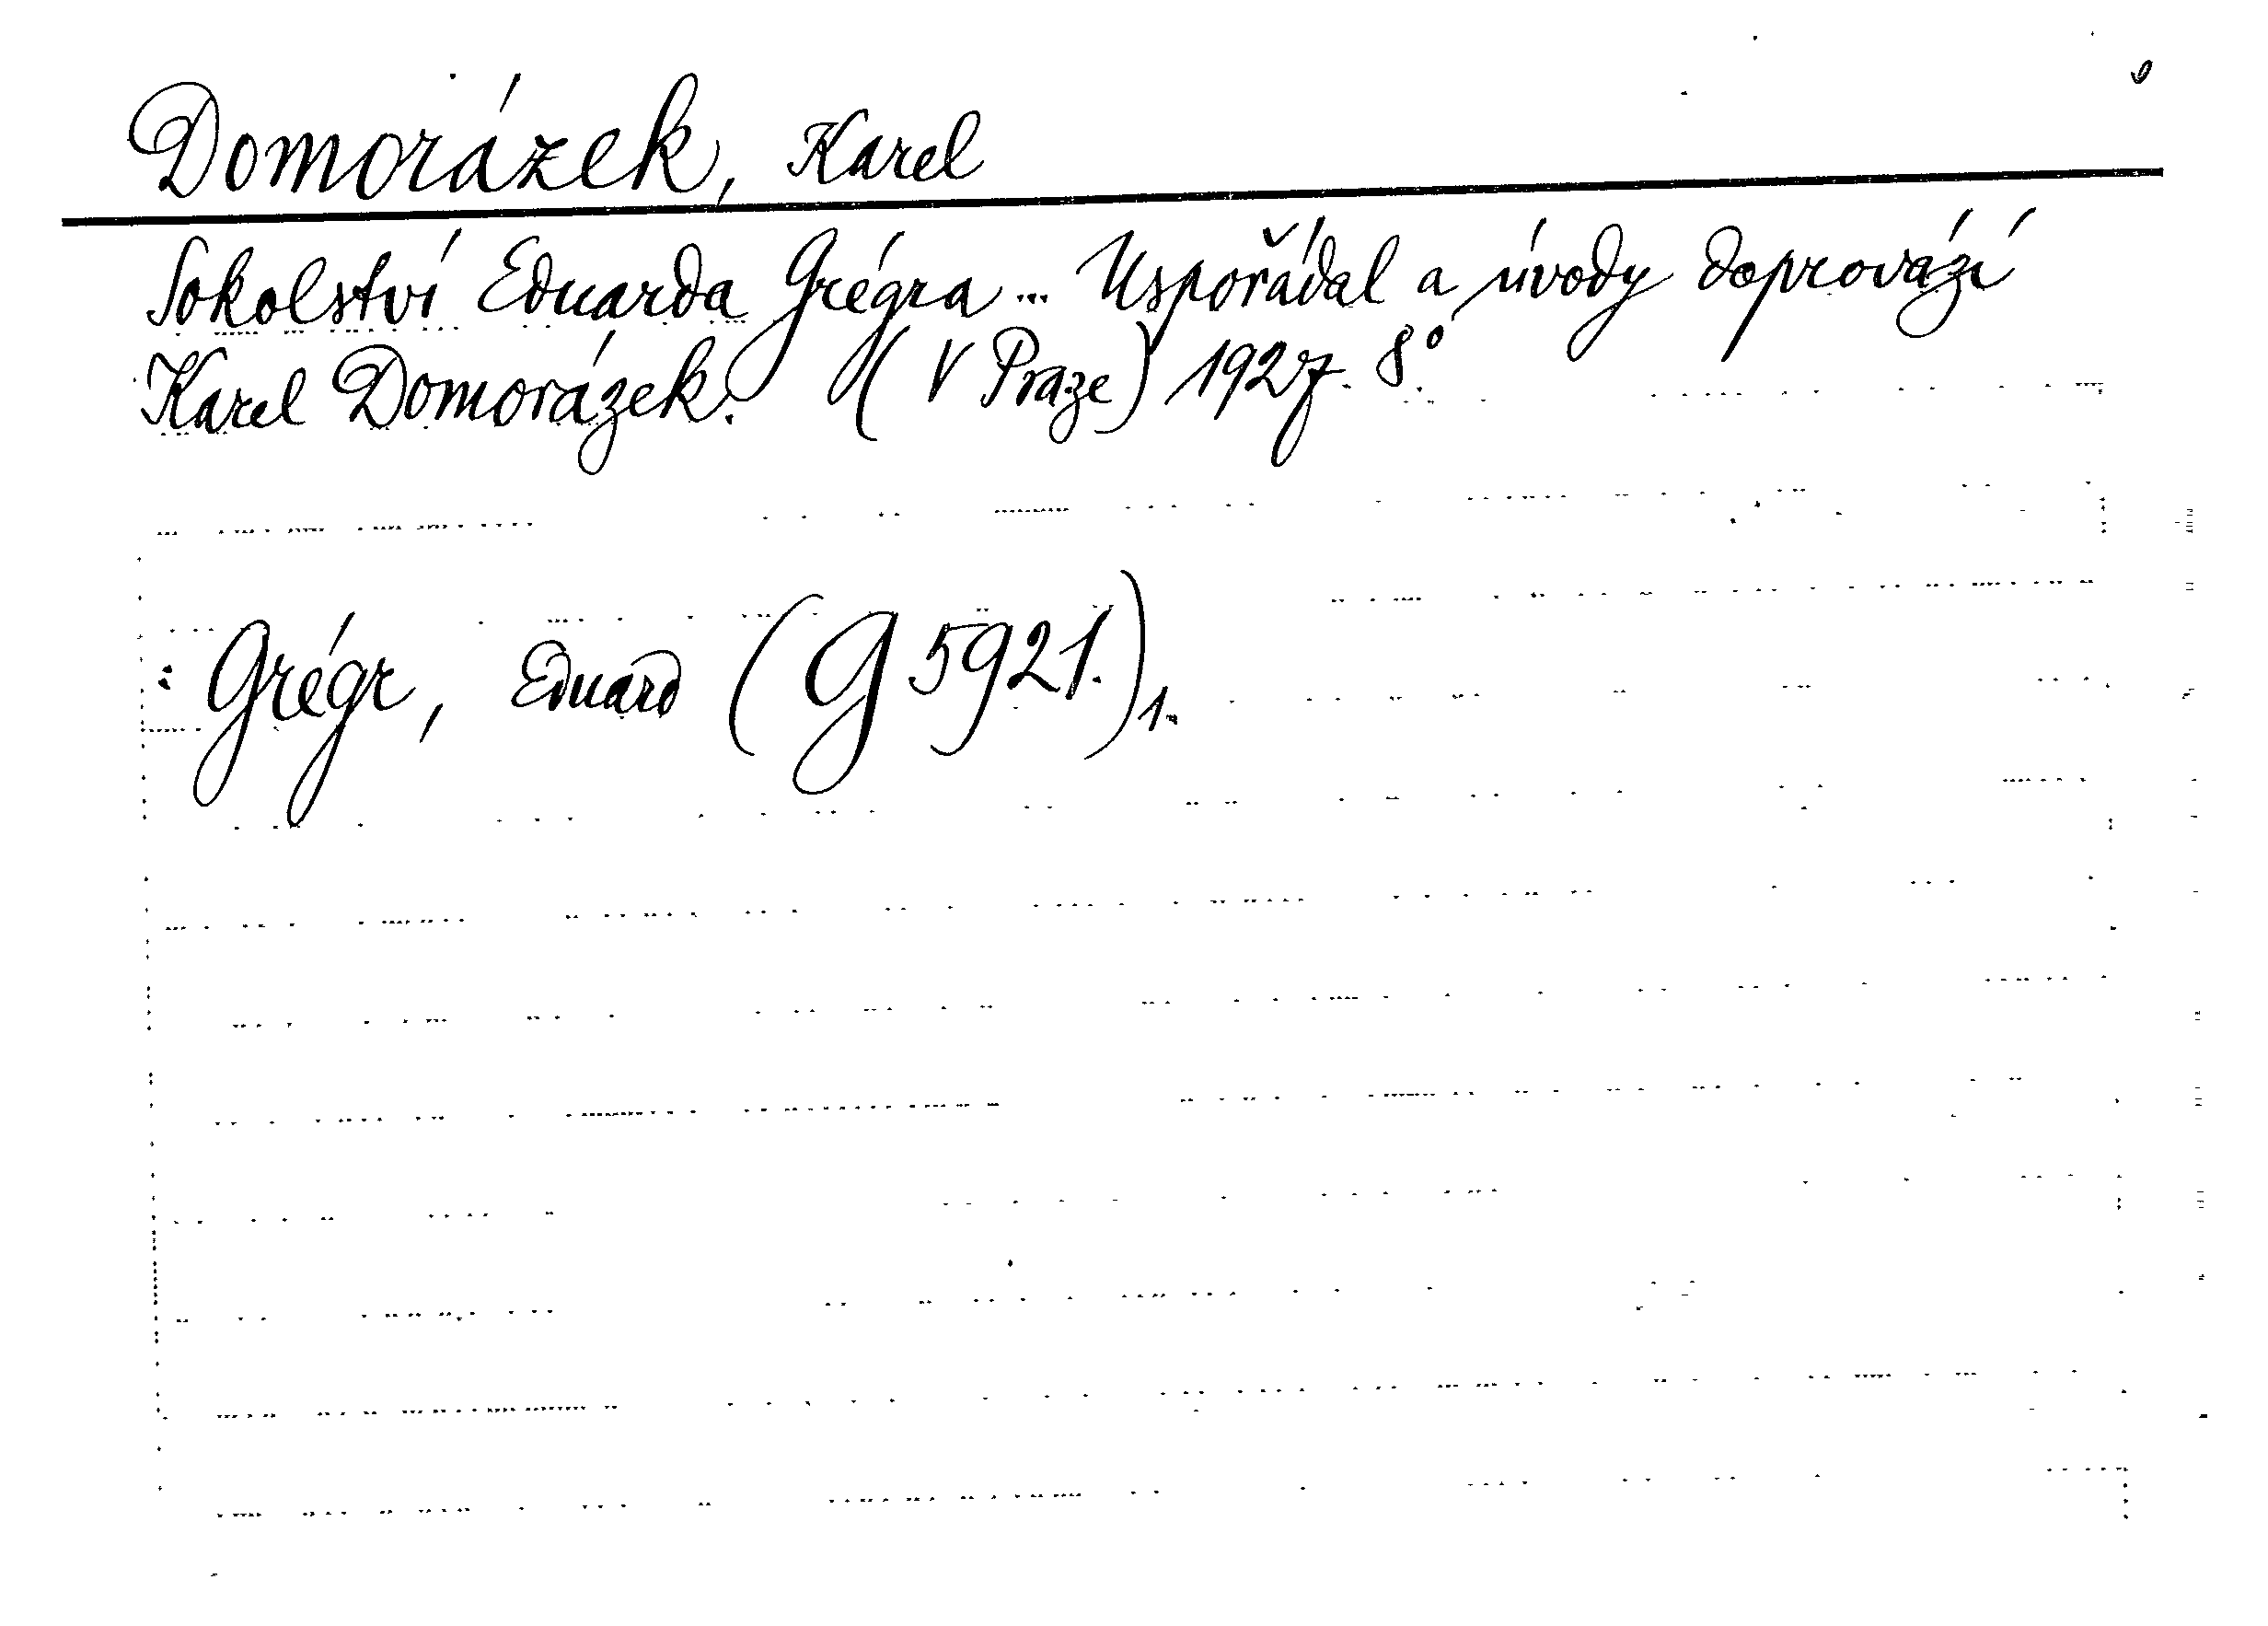 Domorázek, Karel
Sokolství Eduarda Grégra ... Uspořádal a úvody doprovází
Karel Domorázek. (V Praze) 1927. 8°.
: Grégr, Eduard (G 5921.)1.